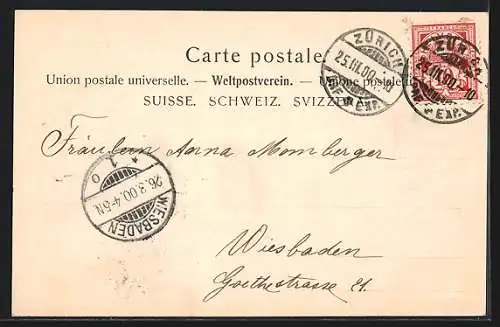 Carte postale.
Union postale universelle. — Weltpostverein. — Unione postale
SUISSE. SCHWEIZ. SVIZZERA
ZÜRICH
25.III.00.-10
BRF. EXP.
ZÜRICH
25.III.00.-10
EXP.
Fräulein Anna Momberger
Wiesbaden
Goethestrasse 21.
* 1 o
26.3.00.4-5N.
WIESBADEN